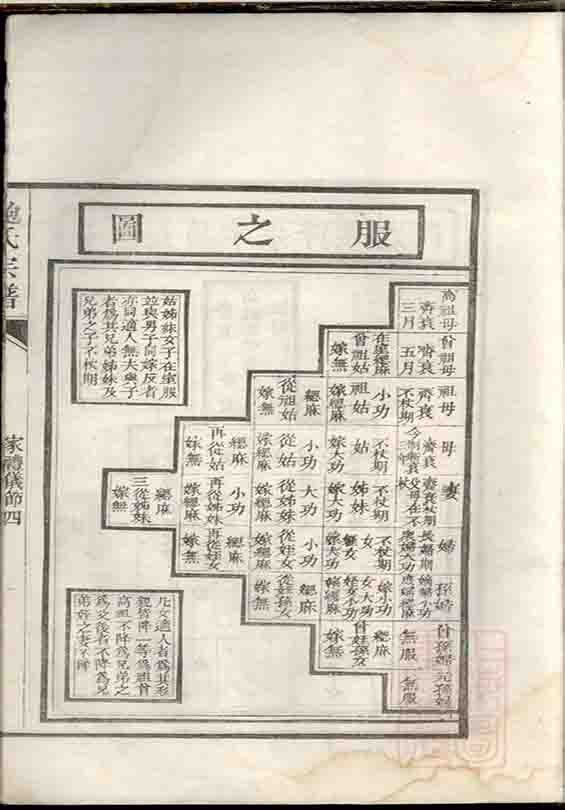 服之圖
高祖母
齊衰
三月
曾祖母
齊衰
五月
在室緦麻
曾祖姑
嫁無
祖母
齊衰
不杖期
小功
祖姑
嫁緦麻
緦麻
從祖姑
嫁無
母
齊衰
三年
不杖期
姑
嫁大功
小功
從姑
嫁緦麻
緦麻
再從姑
嫁無
妻
齊衰杖期
父母在不杖
不杖期
姊妹
嫁大功
大功
從姊妹
嫁緦麻
小功
再從姊妹
嫁緦麻
緦麻
三從姊妹
嫁無
婦
長婦期
衆婦大功
不杖期
女
嫁大功
小功
從姪女
嫁緦麻
緦麻
再從姪女
嫁無
孫婦
嫡婦小功
庶婦緦麻
嫁小功
女大功
嫁緦麻
緦麻
從姪孫女
嫁無
曾孫婦
無服
緦麻
曾姪孫女
嫁無
元孫婦
無服
姑姊妹女子在室服
並與男子同嫁反者
亦同適人無夫與子
者爲其兄弟姊妹及
兄弟之子不杖期
凡女適人者爲其私
親皆降一等爲祖曾
高祖不降爲兄弟之
爲父後者不降爲兄
弟姪之妻不降
施氏宗譜
家禮儀節四